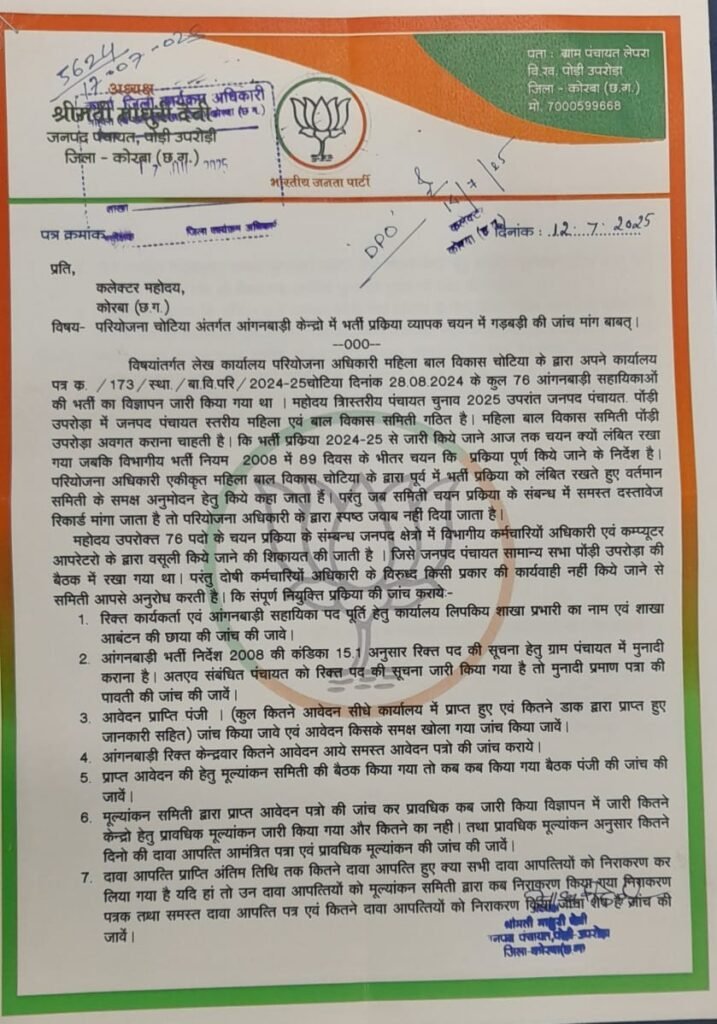 5624
17-07-025
अध्यक्ष
जिला कार्यक्रम अधिकारी
श्रीमती माधुरी देवी
जनपद पंचायत, पोड़ी उपरोड़ा
जिला - कोरबा (छ.ग.)
भारतीय जनता पार्टी
पता : ग्राम पंचायत लेपरा
वि.ख. पोड़ी उपरोड़ा
जिला - कोरबा (छ.ग.)
मो. 7000599668
शाखा
जिला कार्यक्रम अधिकारी
DPO
14/7/25
कलेक्टर
कोरबा (छ.ग.)
पत्र क्रमांक
दिनांक : 12.7.2025
प्रति,
कलेक्टर महोदय,
कोरबा (छ.ग.)
विषय- परियोजना चोटिया अंतर्गत आंगनबाड़ी केन्द्रो में भर्ती प्रकिया व्यापक चयन में गड़बड़ी की जांच मांग बाबत्।
--000--
विषयांतर्गत लेख कार्यालय परियोजना अधिकारी महिला बाल विकास चोटिया के द्वारा अपने कार्यालय
पत्र क. /173/स्था./बा.वि.परि/2024-25चोटिया दिनांक 28.08.2024 के कुल 76 आंगनबाड़ी सहायिकाओं
की भर्ती का विज्ञापन जारी किया गया था । महोदय त्रिास्तरीय पंचायत चुनाव 2025 उपरांत जनपद पंचायत. पोंड़ी
उपरोड़ा में जनपद पंचायत स्तरीय महिला एवं बाल विकास समिती गठित है। महिला बाल विकास समिती पोंड़ी
उपरोड़ा अवगत कराना चाहती है। कि भर्ती प्रकिया 2024-25 से जारी किये जाने आज तक चयन क्यों लंबित रखा
गया जबकि विभागीय भर्ती नियम 2008 में 89 दिवस के भीतर चयन कि प्रकिया पूर्ण किये जाने के निर्देश है।
परियोजना अधिकारी एकीकृत महिला बाल विकास चोटिया के द्वारा पूर्व में भर्ती प्रकिया को लंबित रखते हुए वर्तमान
समिती के समक्ष अनुमोदन हेतु किये कहा जाता हैं। परंतु जब समिती चयन प्रकिया के संबन्ध में समस्त दस्तावेज
रिकार्ड मांगा जाता है तो परियोजना अधिकारी के द्वारा स्पष्ठ जवाब नही दिया जाता है।
महोदय उपरोक्त 76 पदो के चयन प्रकिया के संम्बन्ध जनपद क्षेत्रो में विभागीय कर्मचारियों अधिकारी एवं कम्प्यूटर
आपरेटरो के द्वारा वसूली किये जाने की शिकायत की जाती है । जिसे जनपद पंचायत सामान्य सभा पोंड़ी उपरोड़ा की
बैठक में रखा गया था। परंतु दोषी कर्मचारियों अधिकारी के विरुध्द किसी प्रकार की कार्यवाही नहीं किये जाने से
समिती आपसे अनुरोध करती है। कि संपूर्ण नियुक्ति प्रकिया की जांच कराये:-
1. रिक्त कार्यकर्ता एवं आंगनबाड़ी सहायिका पद पूर्ति हेतु कार्यालय लिपकिय शाखा प्रभारी का नाम एवं शाखा
आबंटन की छाया की जांच की जावे।
2. आंगनबाड़ी भर्ती निर्देश 2008 की कंडिका 15.1 अनुसार रिक्त पद की सूचना हेतु ग्राम पंचायत में मुनादी
कराना है। अतएव संबंधित पंचायत को रिक्त पद की सूचना जारी किया गया है तो मुनादी प्रमाण पत्रा की
पावती की जांच की जावें।
3. आवेदन प्राप्ति पंजी । (कुल कितने आवेदन सीधे कार्यालय में प्राप्त हुए एवं कितने डाक द्वारा प्राप्त हुए
जानकारी सहित) जांच किया जावे एवं आवेदन किसके समक्ष खोला गया जांच किया जावें।
4. आंगनबाड़ी रिक्त केन्दवार कितने आवेदन आये समस्त आवेदन पत्रो की जांच कराये।
5. प्राप्त आवेदन की हेतु मूल्यांकन समिती की बैठक किया गया तो कब कब किया गया बैठक पंजी की जांच की
जावें।
6. मूल्यांकन समिती द्वारा प्राप्त आवेदन पत्रो की जांच कर प्रावधिक कब जारी किया विज्ञापन में जारी कितने
केन्द्रो हेतु प्रावधिक मूल्यांकन जारी किया गया और कितने का नही। तथा प्रावधिक मूल्यांकन अनुसार कितने
दिनो की दावा आपत्ति आमंत्रित पत्रा एवं प्रावधिक मूल्यांकन की जांच की जावें।
7. दावा आपत्ति प्राप्ति अंतिम तिथि तक कितने दावा आपत्ति हुए क्या सभी दावा आपत्तियों को निराकरण कर
लिया गया है यदि हां तो उन दावा आपत्तियों को मूल्यांकन समिती द्वारा कब निराकरण किया गया निराकरण
पत्रक तथा समस्त दावा आपत्ति पत्र एवं कितने दावा आपत्तियों को निराकरण किया जाना शेष है जांच की
जावें।
श्रीमती माधुरी देवी
जनपद पंचायत,पोड़ी-उपरोड़ा
जिला-कोरबा(छ.ग)